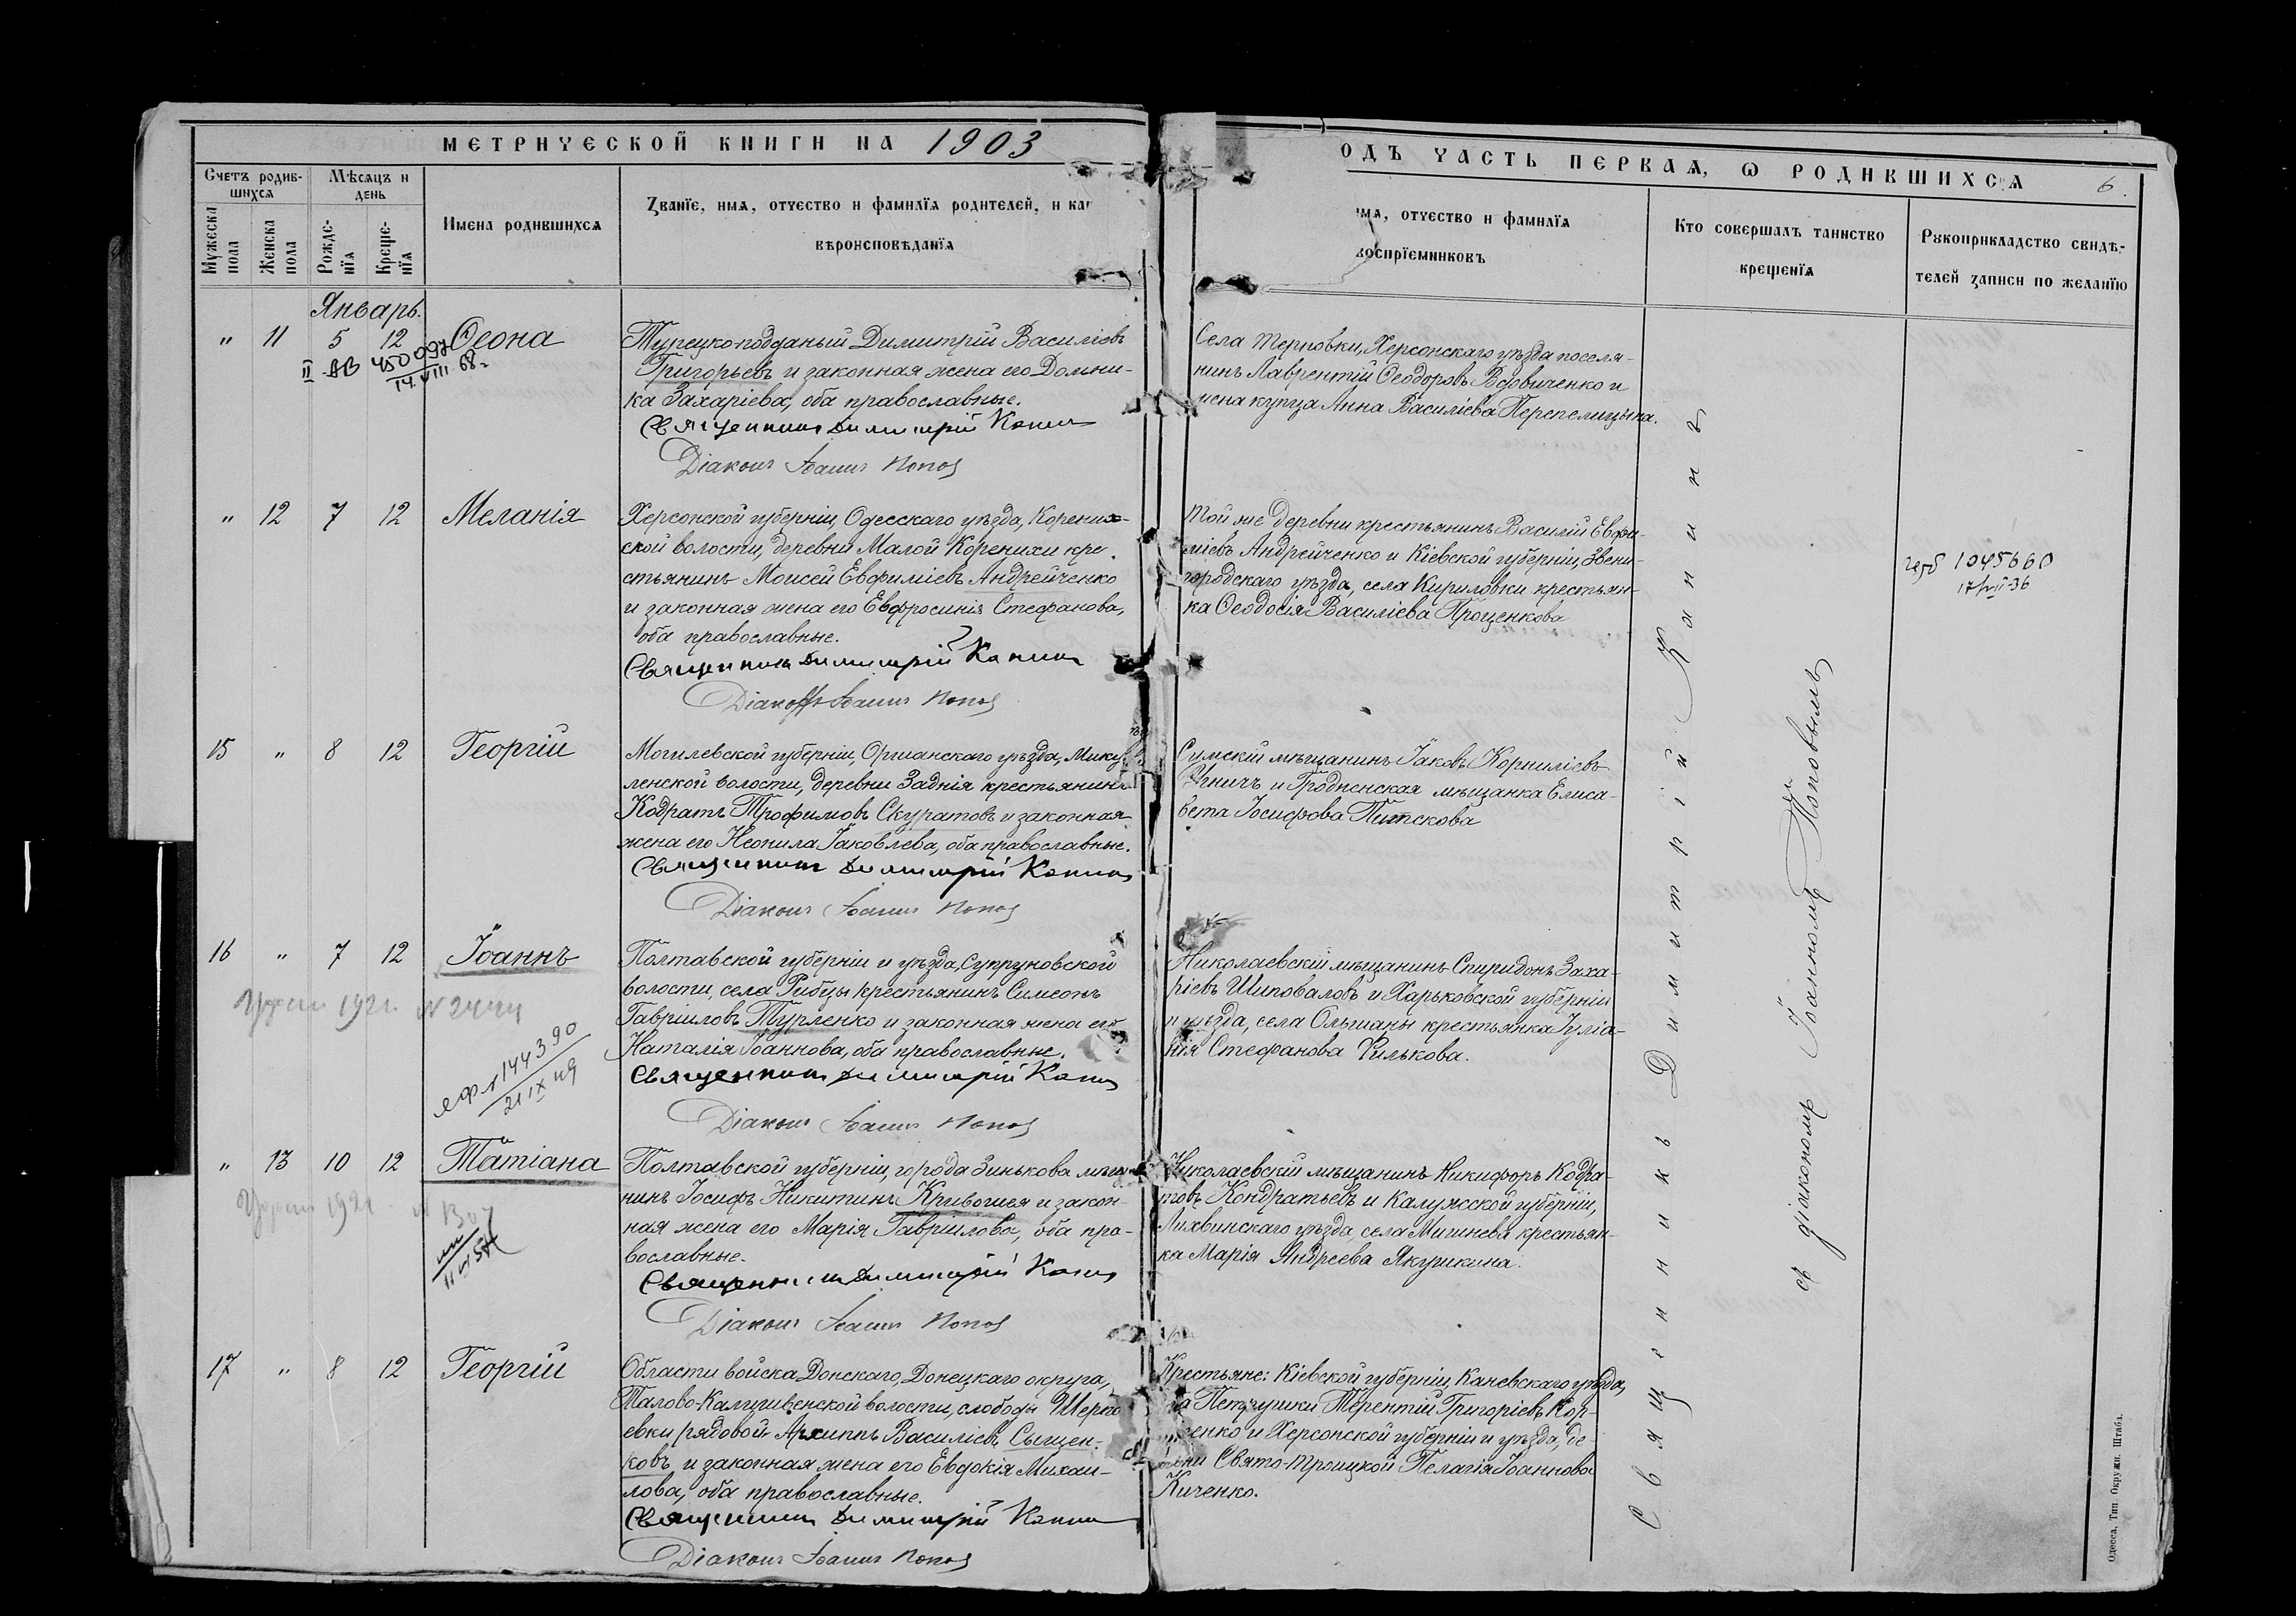 МЕТРИЧЕСКОЙ КНИГИ НА 1903
ОДЪ ЧАСТЬ ПЕРВАЯ, Ѡ РОДИВШИХСЯ
6.
Счетъ родив-
шихся
Мѣсяцъ и
день
Мужеска
пола
Женска
пола
Рожде-
нїя
Креще-
нїя
Имена родившихся
Званїе, имя, отчество и фамилїя родителей, и как
вѣроисповѣданїя
имя, отчество и фамилїя
воспрїемниковъ
Кто совершалъ таинство
крещенїя
Рукоприкладство свидѣ-
телей записи по желанїю
Январь.
" 11 5 12 Ѳеона
II АВ 450097
14.VIII.68г
Турецко-подданый Димитрій Василіевъ
Григорьевъ и законная жена его Домни-
ка Захаріева, оба православные.
Священникъ Димитрій
Діаконъ Іоаннъ Попов
Села Терновки, Херсонскаго уѣзда поселя-
нинъ Лаврентій Ѳеодоровъ Вдовиченко и
жена купца Анна Василіева Перепелицына.
" 12 7 12 Меланія
Херсонской губерніи, Одесскаго уѣзда, Корених-
ской волости, деревни Малой Коренихи кре-
стьянинъ Моисей Евфиміевъ Андрейченко
и законная жена его Евфросинія Стефанова,
оба православные.
Священникъ Димитрій
Діаконъ Іоаннъ Попов
Той же деревни крестьянинъ Василій Евфи-
міевъ Андрейченко и Кіевской губерніи, Звени-
городскаго уѣзда, села Кириловки крестьян-
ка Ѳеодосія Василіева Проценкова
1045660
15 " 8 12 Георгій
Могилевской губерніи, Оршанскаго уѣзда, Мику-
ленской волости, деревни Заднія крестьянинъ
Кодратъ Трофимовъ Скуратовъ и законная
жена его Неонила Іаковлева, оба православные.
Священникъ Димитрій
Діаконъ Іоаннъ Попов
Сумскій мѣщанинъ Іаковъ Корниліевъ
и Гродненская мѣщанка Елиса-
вета Іосифова
16 " 7 12 Іоаннъ
144390
21 IX 49
Полтавской губерніи и уѣзда, Супруновской
волости, села Рибцы крестьянинъ Симеонъ
Гавріиловъ Турленко и законная жена его
Наталія Іоаннова, оба православные.
Священникъ Димитрій
Діаконъ Іоаннъ Попов
Николаевскій мѣщанинъ Спиридонъ Заха-
ріевъ Шиповаловъ и Харьковской губерніи
и уѣзда, села Ольшаны крестьянка Іуліа-
нія Стефанова Филькова.
" 13 10 12 Татіана
Полтавской губерніи, города Зинькова мѣща-
нинъ Іосифъ Никитинъ Кривошея и закон-
ная жена его Марія Гавріилова, оба пра-
вославные.
Священникъ Димитрій
Діаконъ Іоаннъ Попов
Николаевскій мѣщанинъ Никифоръ Кодра-
товъ Кондратьевъ и Калужской губерніи,
Лихвинскаго уѣзда, села Мишнева крестьян-
ка Марія Андреева Якушкина.
17 " 8 12 Георгій
Области войска Донскаго, Донецкаго округа,
Талово-Калитвенской волости, слободы
евки рядовой Архиппъ Василіевъ Сыщен-
ковъ и законная жена его Евдокія Михаи-
лова, оба православные.
Священникъ Димитрій
Діаконъ Іоаннъ Попов
Крестьяне: Кіевской губерніи, Каневскаго уѣзда,
Терентій Григоріевъ Кор-
енко и Херсонской губерніи и уѣзда, де-
ревни Свято-Троицкой Пелагія Іоаннова
Киченко.
Священникъ Димитрій Капинъ
съ діакономъ Іоанномъ Поповымъ
Одесса, Тип. Окружн. Штаба.